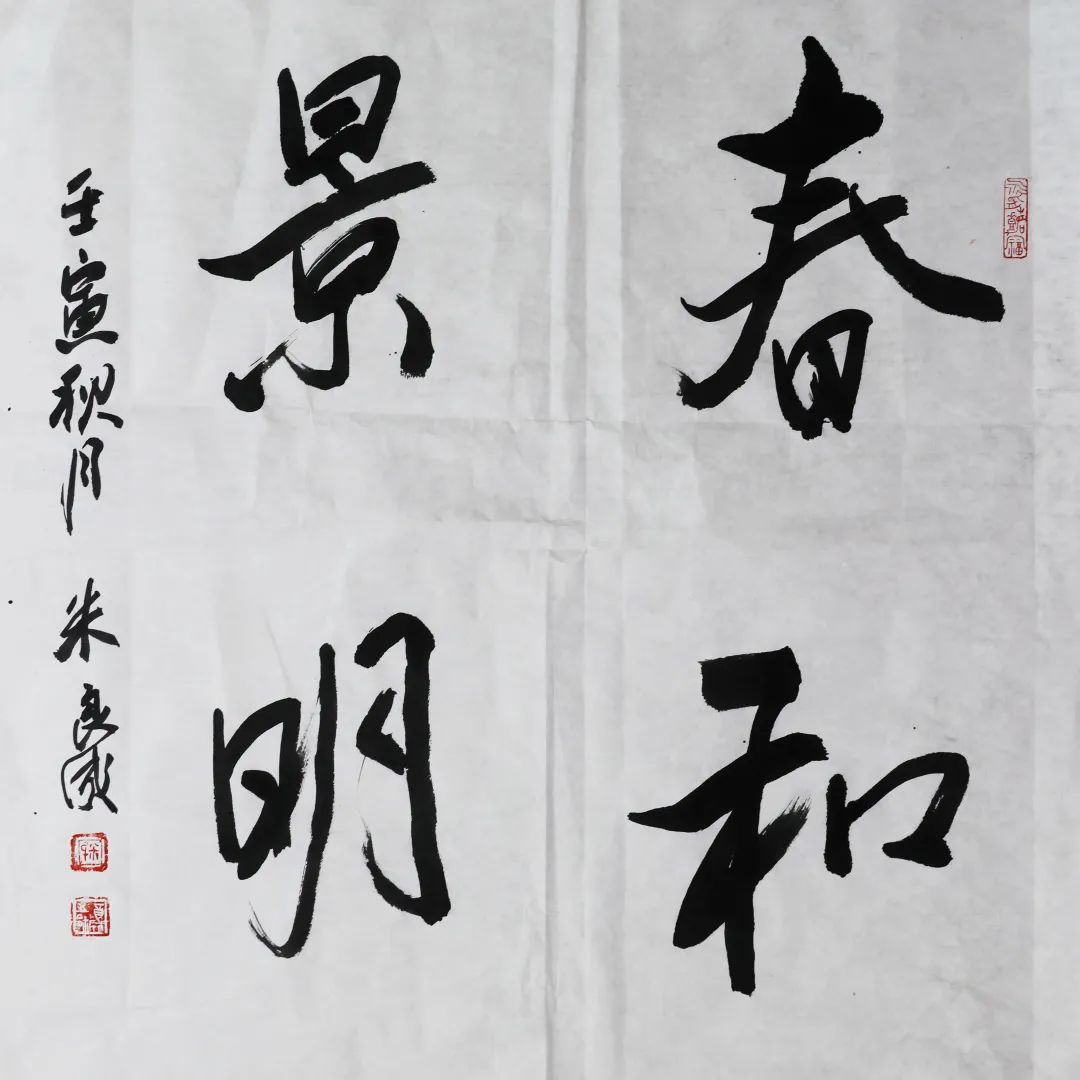 春和
景明
壬寅秋月 朱良成